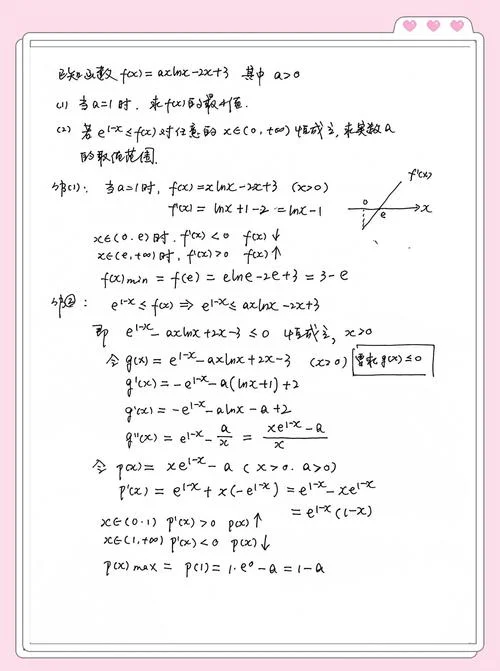 已知函数 f(x)=axlnx-2x+3 其中 a>0
(1) 当a=1时, 求f(x)的最小值.
(2) 若 e^{1-x}≤f(x)对任意的 x∈(0,+∞)恒成立, 求实数a
的取值范围.
解(1): 当a=1时, f(x)=xlnx-2x+3 (x>0)
f'(x)=lnx+1-2=lnx-1
f'(x)
0 e x
x∈(0.e)时, f'(x)<0 f(x)↓
x∈(e,+∞)时, f'(x)>0 f(x)↑
f(x)min = f(e) = elne-2e+3 = 3-e
解②: e^{1-x}≤f(x) ⇒ e^{1-x}≤axlnx-2x+3
即 e^{1-x}-axlnx+2x-3≤0 恒成立, x>0
令g(x)=e^{1-x}-axlnx+2x-3 (x>0) g(x)≤0
g'(x)=-e^{1-x}-a(lnx+1)+2
g'(x)=-e^{1-x}-alnx-a+2
g''(x)=e^{1-x}-\frac{a}{x}=\frac{xe^{1-x}-a}{x}
令 p(x)= xe^{1-x}-a (x>0. a>0)
p'(x)=e^{1-x}+x(-e^{1-x})=e^{1-x}-xe^{1-x}
=e^{1-x}(1-x)
x∈(0.1) p'(x)>0 p(x)↑
x∈(1,+∞) p'(x)<0 p(x)↓
p(x)max = p(1)=1·e^0-a=1-a